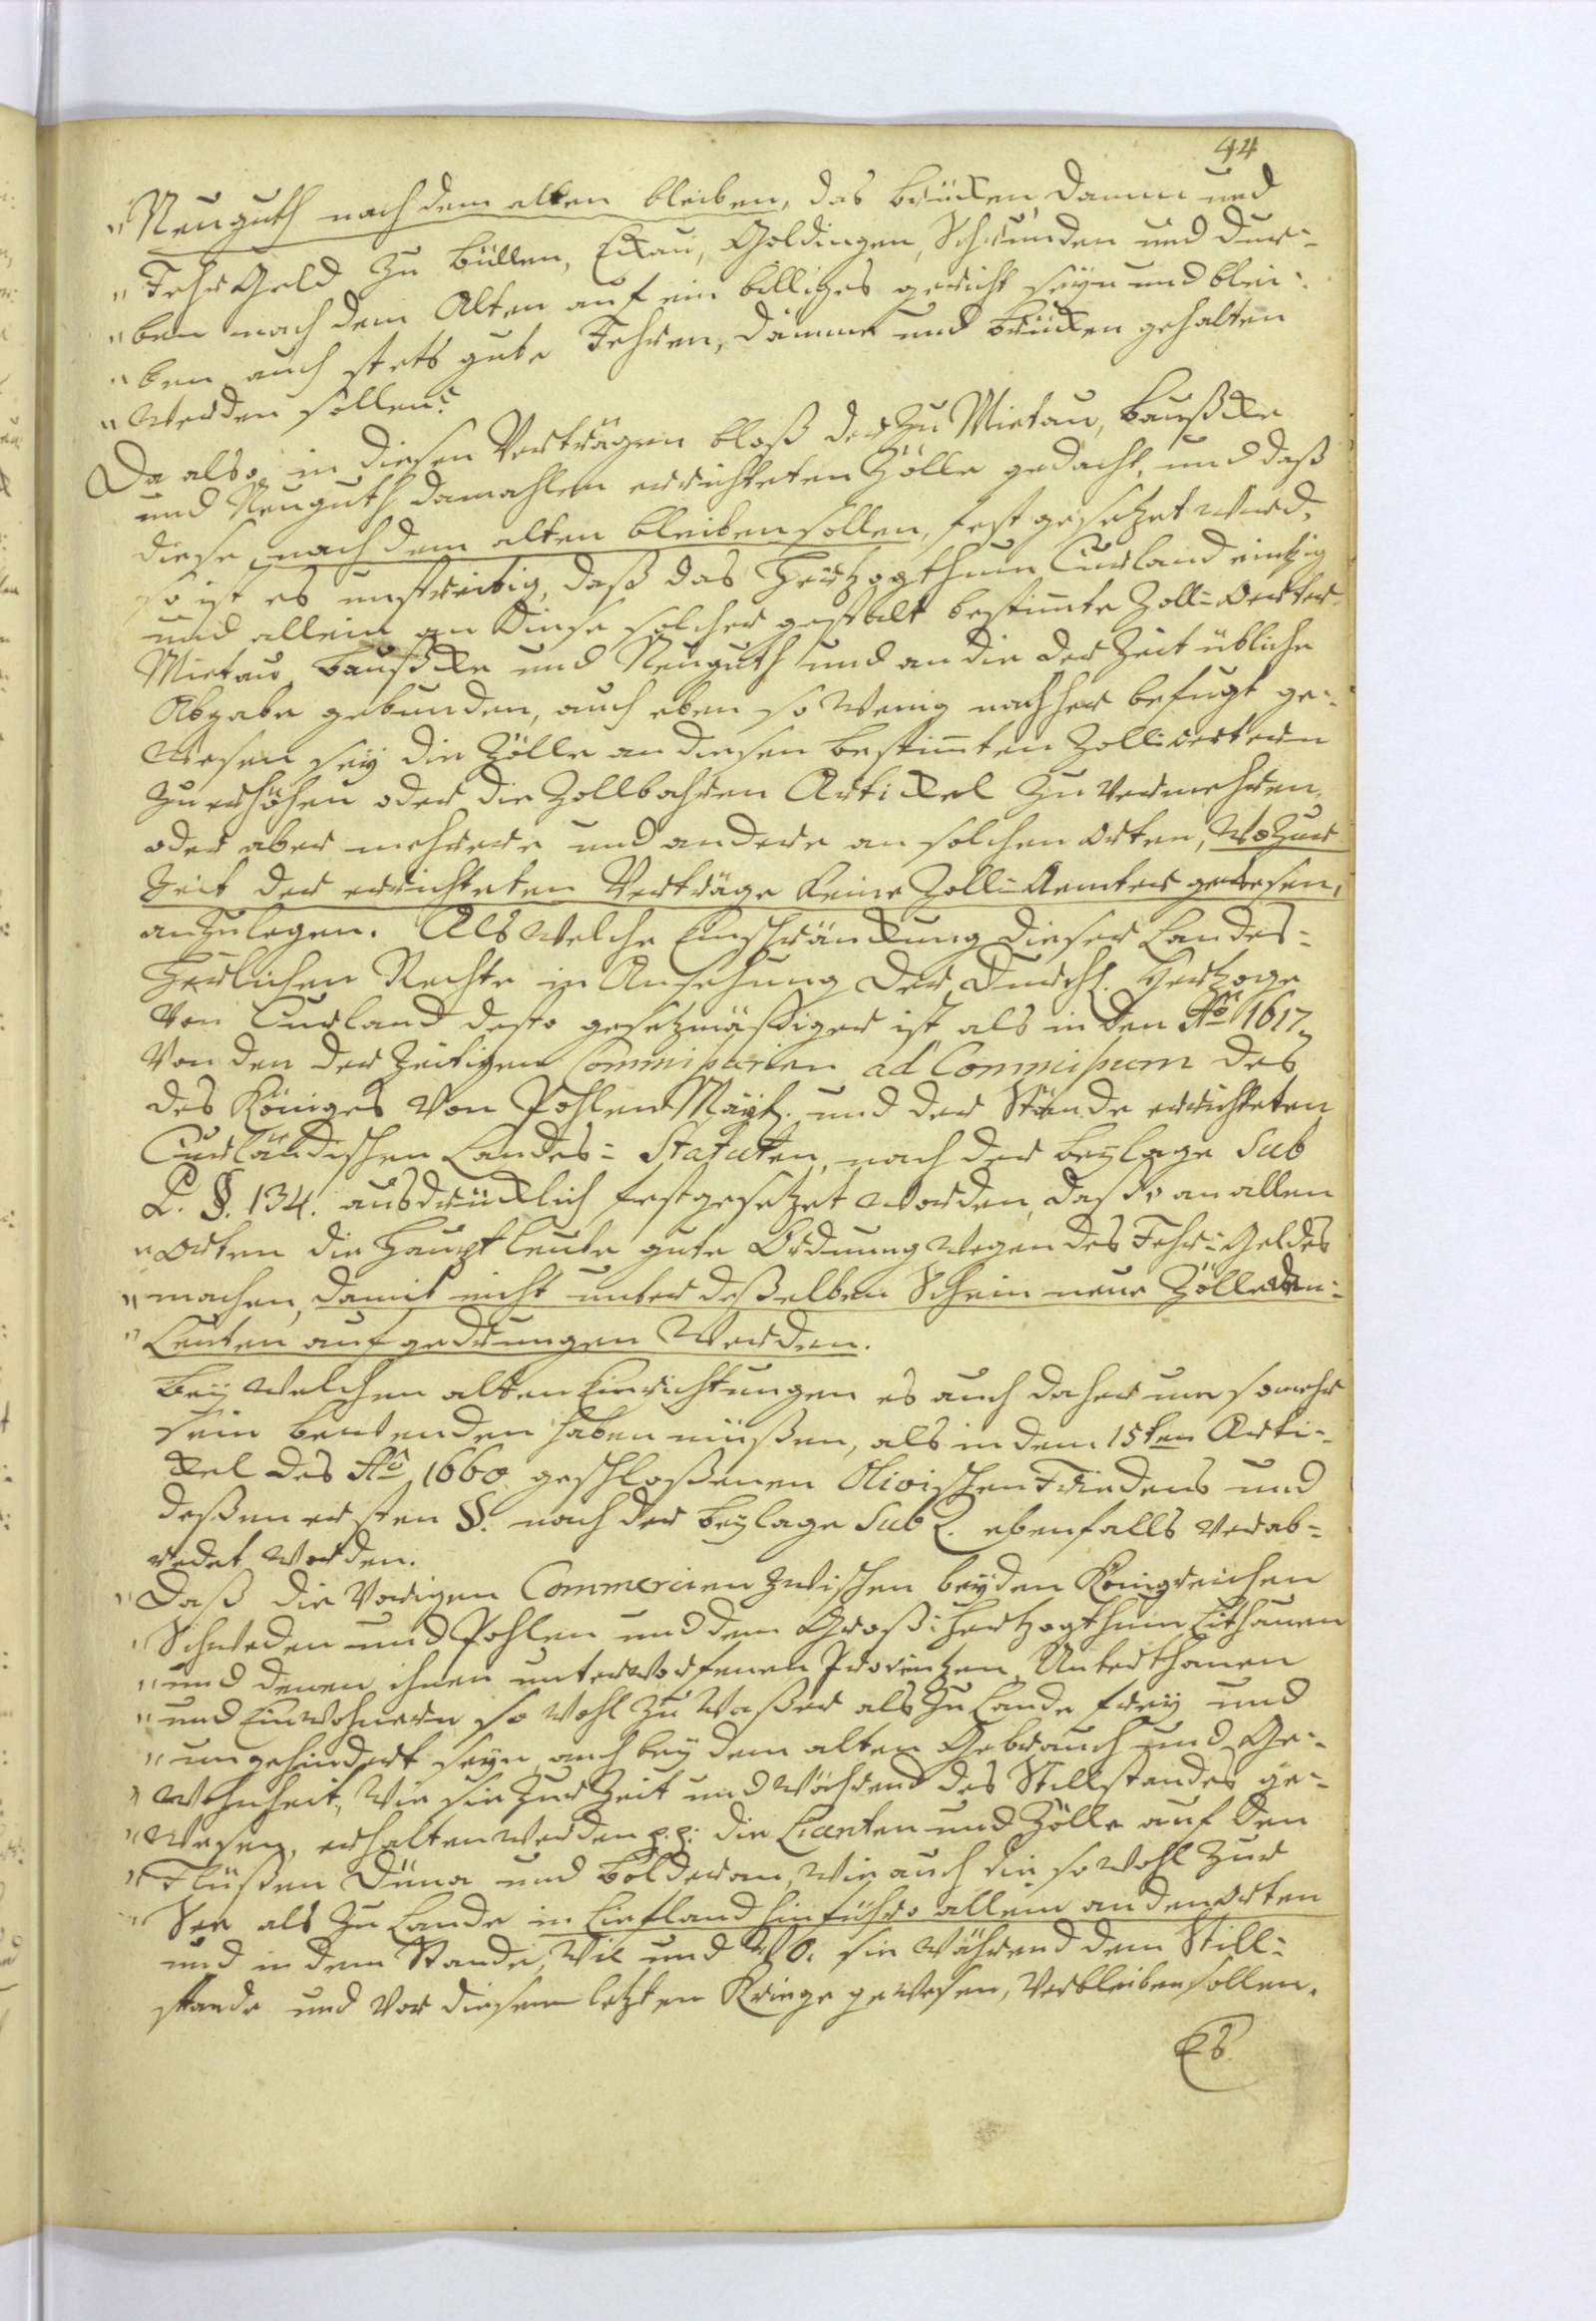 44
"Neuguth nach dem alten bleiben, das Brücken Damm und
"Fehr Geld zu Büllen, Eckau, Goldingen, Schrunden und Dur=
"ben nach dem Alten auf ein billiges gericht seyn und blei=
"ben auch stets gute Fehren, Dämme und Brücken gehalten
"werden sollen.
Da also in diesen Verträgen bloß der zu Mietau, Baußke
und Neuguth damahlen errichteten Zölle gedacht, und daß
diese nach dem alten bleiben sollen, fest gesetzet wird,
so ist es unstreitig, daß das Hertzogthum Curland eintzig
und allein an diese solcher gestalt bestimte Zoll=Oerter
Mietau, Baußke und Neuguth und an die der Zeit übliche
Abgabe gebunden, auch eben so wenig nachher befugt ge=
wesen sey die Zölle an diesen bestimten Zoll=oertern
zu erhöhen oder die Zollbahren Artickel zu vermehren,
oder aber mehrere und andere an solchen orten, wo zur
Zeit der errichteten Verträge keine Zoll=Aemter gewesen,
anzulegen. Als welche Einschränckung dieser Landes=
Herrlichen Rechte in Ansehung der Durchl. Hertzoge
von Curland desto gesetzmäßiger ist, als in den Ao 1617
von den derzeitigen Commissarien ad Commissum des
des Königes von Pohlen Mayt. und der Stände errichteten
Curländischen Landes= Statuten, nach der Beylage sub
L. §. 134. ausdrücklich festgesetzet worden, daß an allen
"orten die Hauptleute gute Ordnung wegen des Fehr=Geldes
"machen, damit nicht unter deßelben Schein neue Zölle den=
"Leuten aufgedrungen werden.
Bey welchen alten Einrichtungen es auch daher um so mehr
sein bewenden haben müßen, als in dem 15ten Arti=
kel des Ao 1660 geschloßenen Olivischen Friedens und
deßen ersten §. nach der Beylage sub ebenfalls verab=
redet worden.
"Daß die vorigen Commercien zwischen beyden Königreichen
"Schweden und Pohlen und dem Groß=Hertzogthum Lithauen
"und denen ihnen unterworfenen Provintzen, Unterthanen
"und Einwohnern so wohl zu Waßer als zu Lande frey und
"ungehindert seyn, auch bey dem alten Gebrauch und Ge=
"wohnheit, wie sie zur Zeit und während des Stillstandes ge=
"wesen, erhalten werden p.p. die Licenten und Zölle auf den
"Flüßen Düna und Bolderau, wie auch die so wohl zur
"See als zu Lande in Liefland hinführo allein an den orten
und in dem Stande, wie und wo sie während dem Still=
stande und vor diesem letzten Kriege gewesen, verbleiben sollen.
Es